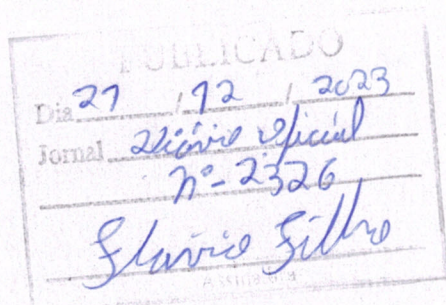 PUBLICADO
Dia 27 / 12 / 2023
Jornal Diário Oficial
nº - 2326
Flávio Filho
Assinatura